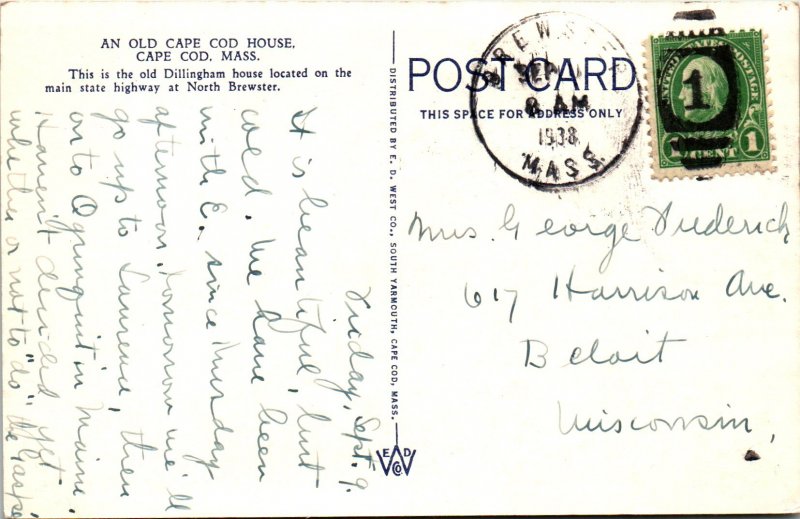 AN OLD CAPE COD HOUSE,
CAPE COD, MASS.
This is the old Dillingham house located on the
main state highway at North Brewster.
Friday, Sept. 9.
It is beautiful, but
cold. We have been
with E. since
afternoon. Tomorrow we'll
go up to Lawrence, then
on to Ogunquit in Maine.
Haven't decided yet
whether or not to "do"
DISTRIBUTED BY E. D. WEST CO., SOUTH YARMOUTH, CAPE COD, MASS.
E D
W
CO
POST CARD
THIS SPACE FOR ADDRESS ONLY
BREWSTER
SEP
8 AM
1938
MASS.
UNITED STATES POSTAGE
1
1 CENT 1
Mrs. George Frederick
617 Harrison Ave.
Beloit
Wisconsin,